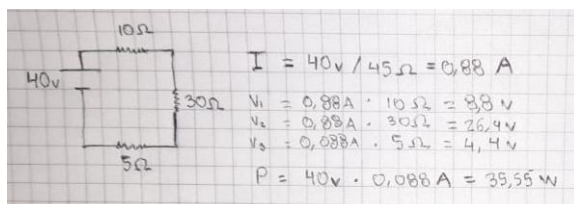 10Ω
40v
30Ω
5Ω
I = 40v / 45Ω = 0,88 A
V₁ = 0,88A · 10Ω = 8,8 v
V₂ = 0,88A · 30Ω = 26,4 v
V₃ = 0,088A · 5Ω = 4,4 v
P = 40v · 0,088 A = 35,55 W